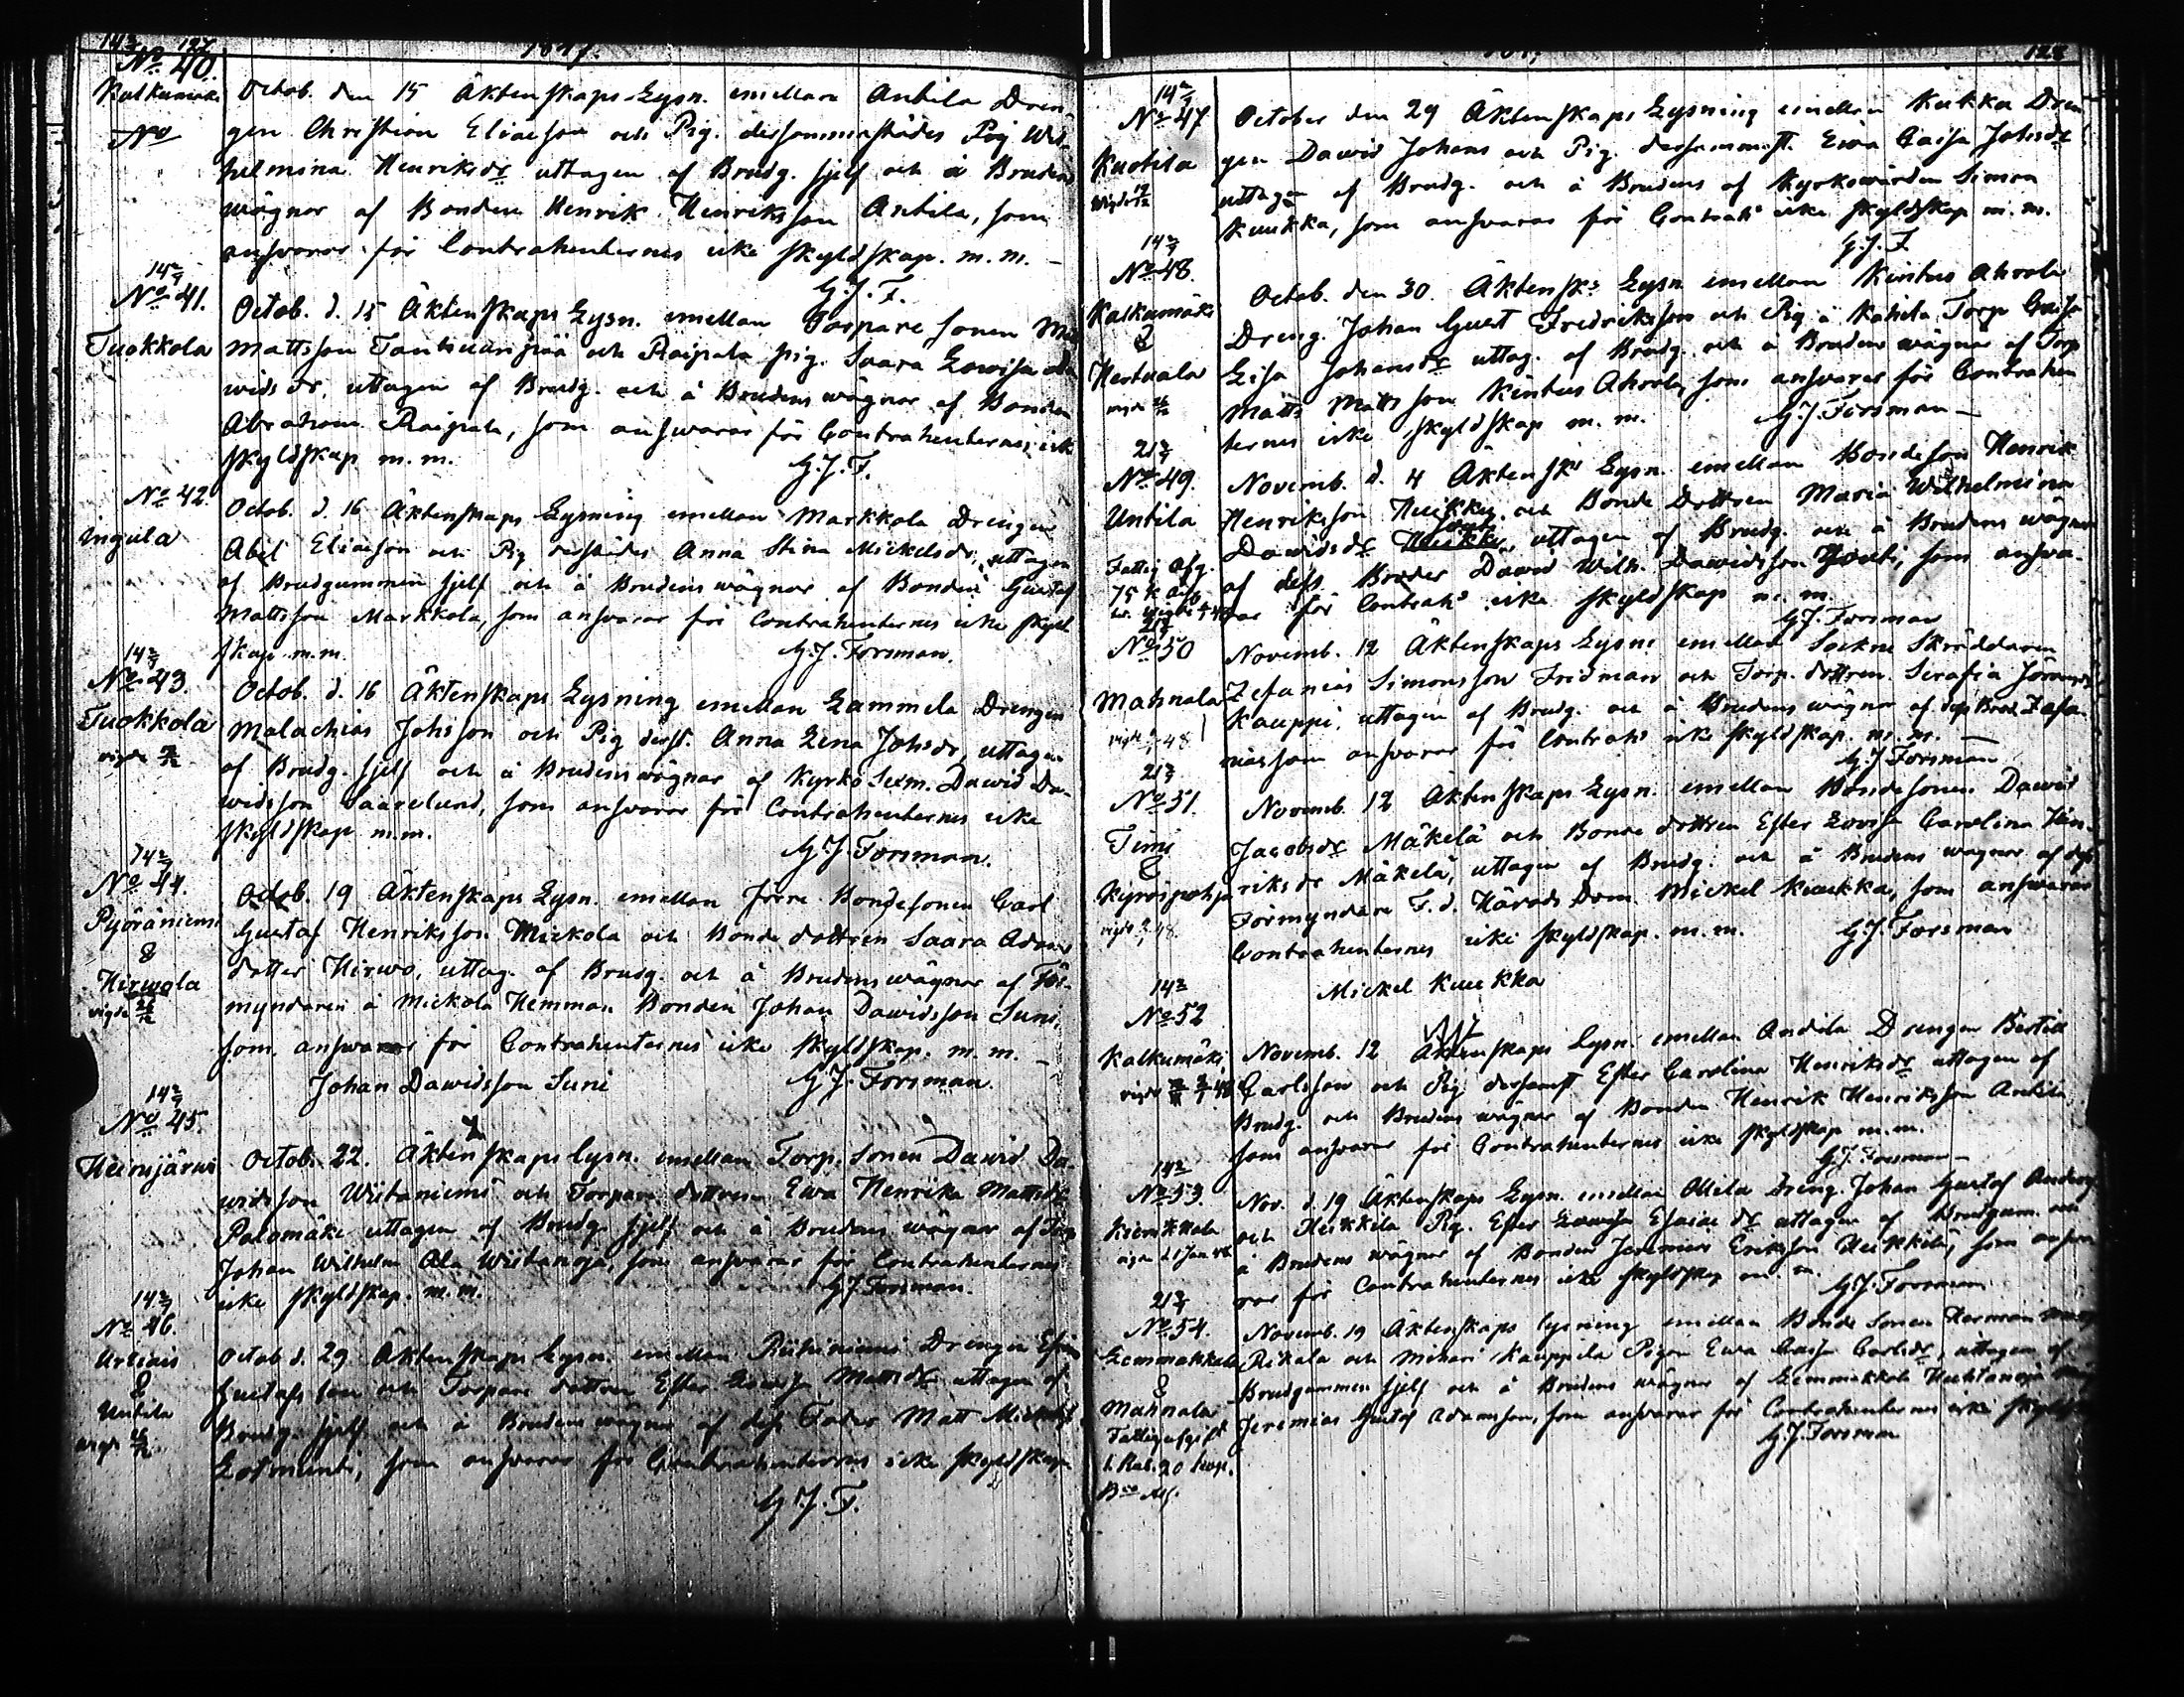 14 2/7 127
1847.
No 40.
Kalkumäki
No
Octob. den 15 Äktenskaps-Lysn. emellan Antila Dren-
gen Christian Eliaesson och Pig. dersammastädes Pig Wil-
helmina Henriksdr uttagen af Brudg. sjelf och å Brudens
wägnar af Bonden Henrik Henriksson Antila, som
answarar för Contrahenternes icke skyldskap. m.m. —
G.J.F.
14 2/7
No 41.
Tuokkola
Octob. d. 15 Äktenskaps Lysn. emellan Torpare Sonen
Mattsson och Raipala pig. Saara Lowisa
widsdr. uttagen af Brudg. och å Brudens wägnar af Bonden
Abraham Raipala, som answarar för Contrahenternes icke
skyldskap m.m.
G.J.F.
No 42
Ingula
Octob. d. 16 Äktenskaps Lysning emellan Markkola Drengen
Abel Eliaeson och Pig derstädes Anna Stina Mickelsdr, uttagen
af Brudgummen sjelf och å Brudens wägnar af Bonden Gustaf
Mattsson Markkola, som answarar för Contrahenternes icke skyld
skap m.m.
G.J. Forsman.
14 2/7
No 43.
Tuokkola
vigde
Octob. d. 16 Äktenskaps Lysning emellan Lammela Drengen
Malachias Johsson och Pig derst. Anna Lena Johsdr, uttagen
af Brudg. sjelf och å Brudens wägnar af Kyrko Sexm. Dawid Da-
widsson Saarelund, som answarar för Contrahenternes icke
skyldskap m.m.
G.J. Forsman.
14 2/7
No 44.
Pyöräniemi
&
Hirwola
vigde 26/12
Octob. 19 Äktenskaps Lysn. emellan förre Bondesonen Carl
Gustaf Henriksson Mickola och Bonde dottren Saara Adams
dotter Hirwo, uttag. af Brudg. och å Brudens wägnar af För-
myndaren å Mickola Hemman Bonden Johan Dawidsson Suni,
som answarar för Contrahenternes icke skyldskap. m.m. —
Johan Dawidsson Suni G.J. Forsman.
14 2/7
No 45.
Heinijärwi
Octob. 22. Äktenskaps lysn. emellan Torp. Sonen Dawid Da-
widsson Wiitaniemi och Torpare dottren Ewa Henrika Mattsdr
Palomäki uttagen af Brudg. sjelf och å Brudens wägnar af Torp
Johan Wilhelm Ala Wiitanoja, som answarar för Contrahenternes
icke skyldskap. m.m.
G.J. Forsman.
14 2/7
No 46.
&
Untila
vigde 26/12
Octob d. 29 Äktenskaps Lysn. emellan Drengen
Gustafsson och Torpare dottren Ester Lowisa Mattsdr uttagen af
Brudg. sjelf och å Brudens wägnar af dess Fader Matt
som answarar för Contrahenternes icke skyldskap
G.J.F.
128
14 2/7
No 47
Kuotila
vigde
October den 29 Äktenskaps Lysning emellan Kukka Dren
gen Dawid Johans och Pig. dersammast. Ewa Caisa Johsdr
uttagen af Brudg. och å Brudens af Kyrkowärden Simon
Kuukka, som answarar för Contrah:s icke skyldskap m.m.
G.J.F
14 2/7
No 48.
Kalkumäki
&
Hertuala
vigde 26/12
Octob. den 30. Äktensk:s Lysn. emellan Kintus Ahoola
Dreng. Johan Gust Fredriksson och Pig å Kahila Torp Caisa
Lisa Johansdr uttag. af Brudg. och å Brudens wägnar af Torp
Matts Mattsson Kintus Ahoola, som answarar för Contrahen
ternes icke skyldskap m.m.
G.J. Forsman —
21 2/7
No 49.
Untila
Fattig Afg.
75 k
vigde
Novemb. d. 4 Äktensk:s Lysn. emellan Bondeson Henrik
Henriksson Heikku och Bonde Dottren Maria Wilhelmina
Dawidsdr Heikku, uttagen af Brudg. och å Brudens wägnar
af dess Broder Dawid Wilh. Dawidsson Jouti, som answa-
rar för Contrah:s icke skyldskap m.m.
G.J. Forsman
21 2/7
No 50
Mahnala
Novemb. 12 Äktenskaps Lysn: emellan Sockne Skräddaren
Zefanias Simonsson Fridman och Torp. dottren. Serafia
Kauppi, uttagen af Brudg. och å Brudens wägnar af dess Brod. Zefa
nias som answarar för Contrah:s icke skyldskap. m.m. —
G.J. Forsman
21 2/7
No 51.
Timi
&
Kyröspohja
Novemb. 12 Äktenskaps Lysn. emellan Bondesonen Dawid
Jacobsdr Mäkelä och Bonde dottren Ester Lovisa Carolina Hen-
riksdr Mäkelä, uttagen af Brudg. och å Brudens wägnar af dess
Förmyndare F.d. Härads Dom. Mickel Kuukka, som answarar
Contrahenternes icke skyldskap. m.m.
G.J. Forsman
Mickel Kuukka
14 2/7
No 52
Kalkumäki
vigde
Novemb. 12 Äktenskaps lysn. emellan Andila Drengen Bertill
Carlsson och Pig dersamst Ester Carolina Henriksdr uttagen af
Brudg. och Brudens wägnar af Bonden Henrik Henriksson Antila,
som answarar för Contrahenternes icke skyldskap m.m.
G.J. Forsman —
14 2/7
No 53.
Nov. d. 19 Äktenskaps Lysn. emellan Ollila Dreng. Johan Gustaf
och Heikkila Pig. Ester Lowisa Esaiae dr uttagen af Brudgum. och
å Brudens wägnar af Bonden Jeremias Eriksson Heikkilä, som answa
rar för Contrahenternes icke skyldskap m.m.
G.J. Forsman
21 2/7
No 54.
Lemmakkala
&
Mahnala
Fattigafgift
1. Rub. 20 kop.
Novemb. 19 Äktenskaps lysning emellan Bonde Sonen Herman
Rikala och Kauppila Pigan Ewa Caisa Carlsdr, uttagen af
Brudgummen sjelf och å Brudens wägnar af Lemmakkala
Jeremias Gustaf Adamsson, som answarar för Contrahenternes icke
G.J. Forsman